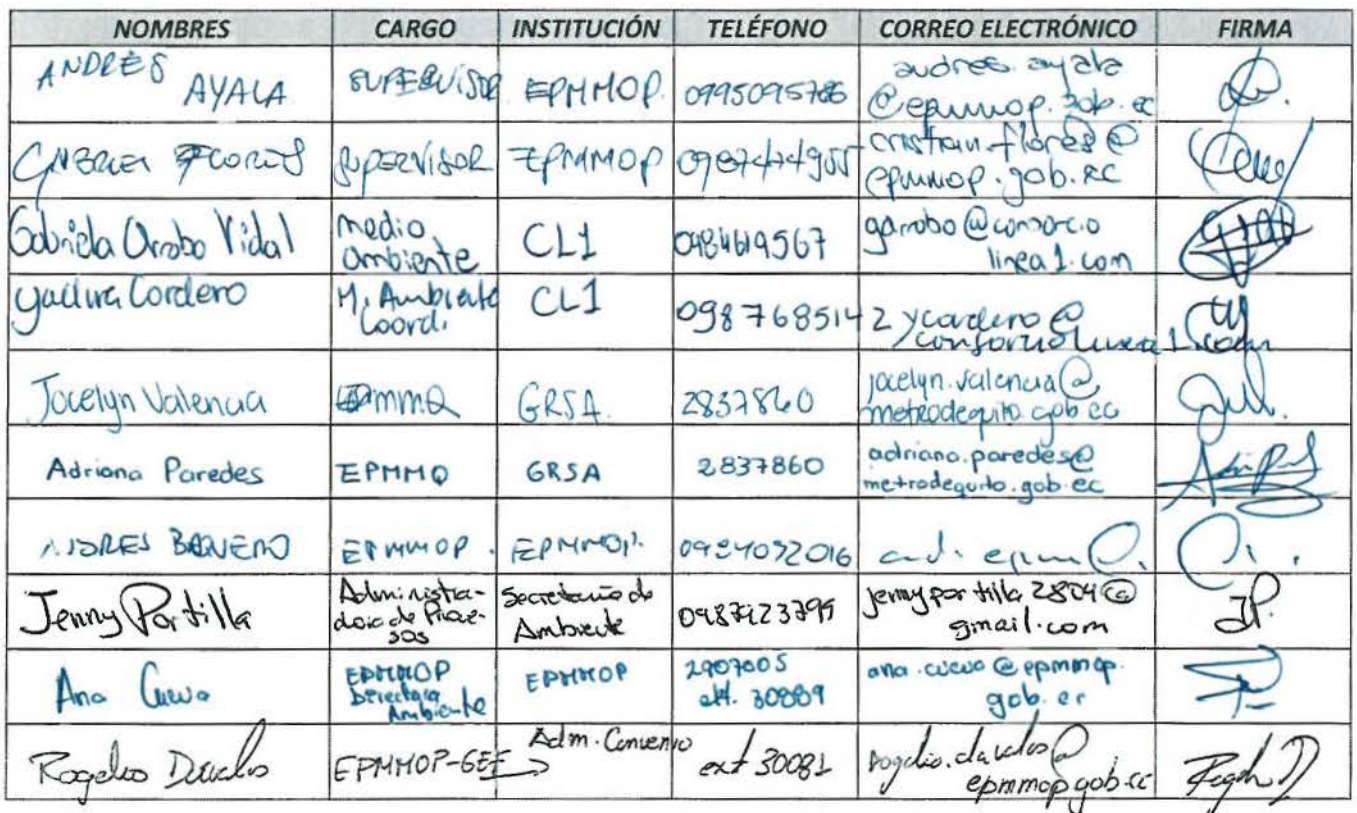 NOMBRES CARGO INSTITUCIÓN TELÉFONO CORREO ELECTRÓNICO FIRMA
ANDRÉS AYALA SUPERVISOR EPMMOP. 0995095786 andres.ayala
@epmmop.gob.ec
FLORES SUPERVISOR EPMMOP cristian.flores@
epmmop.gob.ec
Gabriela Orrobo Vidal Medio
Ambiente CL1 0984619567 garrobo@consorcio
linea1.com
Yadira Cordero M. Ambiente
Coordi. CL1 0987685142 ycordero@
consorciolinea1.com
Jocelyn Valencia EPMMQ GRSA 2837860 jocelyn.valencia@
metrodequito.gob.ec
Adriana Paredes EPMMQ GRSA 2837860 adriana.paredes@
metrodequito.gob.ec
ANDRES EPMMOP. EPMMOP.
Jenny Portilla Administra-
dora de Proce-
sos Secretaría de
Ambiente jennyportilla2804@
gmail.com JP.
Ana Cueva EPMMOP
Directora
Ambiente EPMMOP 2907005
ext. 30889 ana.cueva@epmmop.
gob.ec
Rogelio Dávalos EPMMOP-GEF Adm. Convenio ext 30081 rogelio.davalos@
epmmop.gob.ec